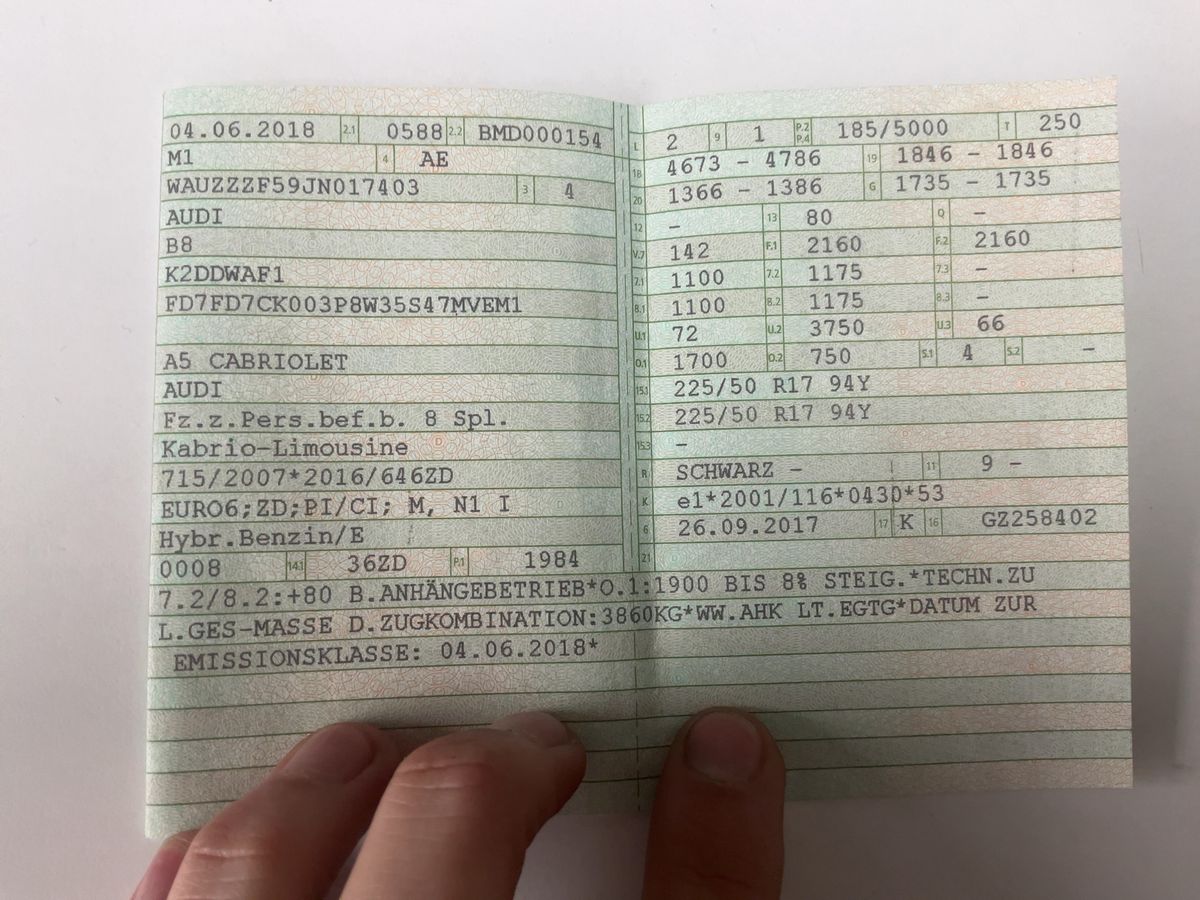 04.06.2018 2.1 0588 2.2 BMD000154
M1 4 AE
WAUZZZF59JN017403 3 4
AUDI
B8
K2DDWAF1
FD7FD7CK003P8W35S47MVEM1
A5 CABRIOLET
AUDI
Fz.z.Pers.bef.b. 8 Spl.
Kabrio-Limousine
715/2007*2016/646ZD
EURO6;ZD;PI/CI; M, N1 I
Hybr.Benzin/E
0008 14.1 36ZD P.1 1984
L 2 9 1 P.2 P.4 185/5000 T 250
18 4673 - 4786 19 1846 - 1846
20 1366 - 1386 G 1735 - 1735
12 - 13 80 Q -
V.7 142 F.1 2160 F.2 2160
7.1 1100 7.2 1175 7.3 -
8.1 1100 8.2 1175 8.3 -
U.1 72 U.2 3750 U.3 66
O.1 1700 O.2 750 S.1 4 S.2 -
15.1 225/50 R17 94Y
15.2 225/50 R17 94Y
15.3 -
R SCHWARZ - 11 9 -
K e1*2001/116*0430*53
6 26.09.2017 17 K 16 GZ258402
21
7.2/8.2:+80 B.ANHÄNGEBETRIEB*O.1:1900 BIS 8% STEIG.*TECHN.ZU
L.GES-MASSE D.ZUGKOMBINATION:3860KG*WW.AHK LT.EGTG*DATUM ZUR
EMISSIONSKLASSE: 04.06.2018*